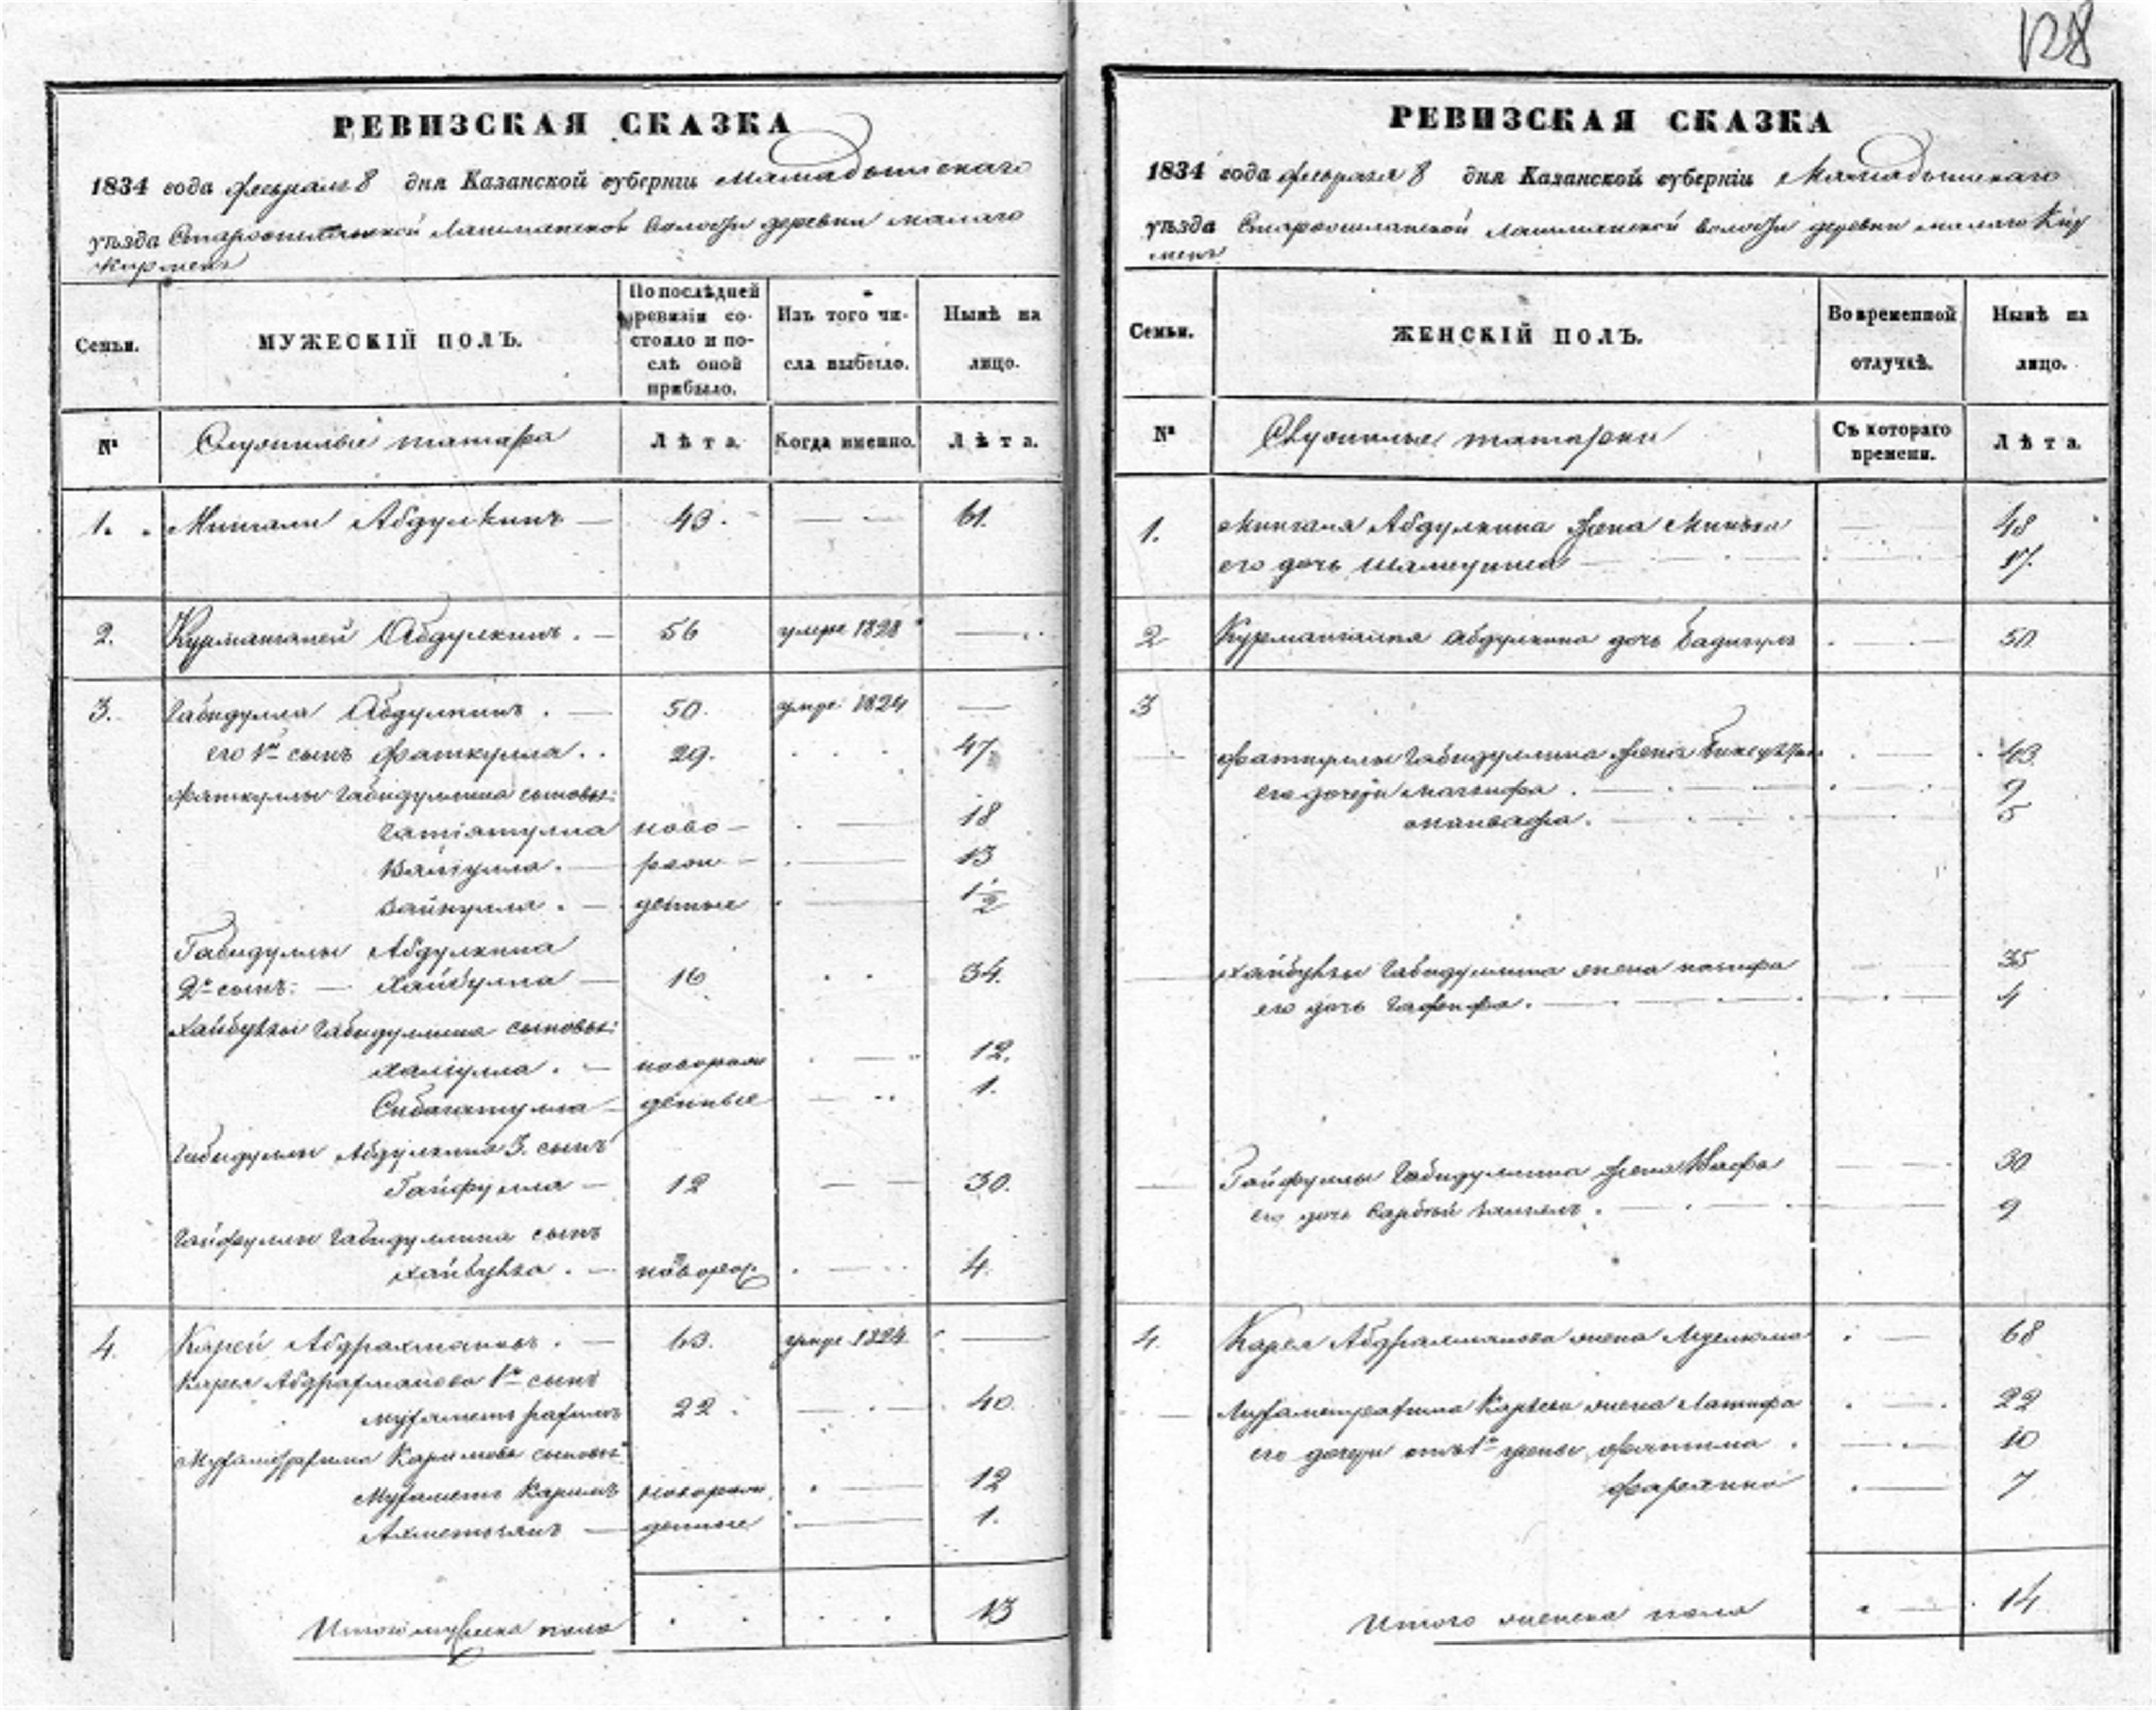 128
РЕВИЗСКАЯ СКАЗКА
1834 года февраля 8 дня Казанской губерніи Мамадышскаго
уѣзда Лашманской волости деревни малаго
Кирмень
Семьи.
МУЖЕСКІЙ ПОЛЪ.
По послѣдней ревизіи состояло и послѣ оной прибыло.
Изъ того числа выбыло.
Нынѣ на лицо.
№
Служилые татара
Лѣта.
Когда именно.
Лѣта.
1. Мингали Абдулкинъ — 43. — 61.
2. Курмангалей Абдулкинъ. — 56 умре 1828 —
3. Габидулла Абдулкинъ. — 50. умре 1824 —
его 1й сынъ Фаткулла. 29. 47
Фаткуллы Габидуллина сыновья:
ново — 18
Валіулла. — рож — 13
денные 1 1/2
Габидуллы Абдулкина
2й сынъ: — Хайбулла — 16 34.
Хайбуллы Габидуллина сыновья:
Халіулла. — новорож 12.
Сибагатулла — денные 1.
Габидуллы Абдулкина 3. сынъ
Гайфулла — 12 — 30.
Гайфуллы Габидуллина сынъ
Хайбулла. — новорож. 4.
4. Карей Абдрахмановъ. — 63. умре 1824. —
Карея Абдрахманова 1й сынъ
Мухаметъ рахимъ 22. 40.
Мухаметрахима Каримова сыновья
Мухаметъ Каримъ новорож 12
Ахметзянъ — денные 1.
Итого мужеска пола 13
РЕВИЗСКАЯ СКАЗКА
1834 года февраля 8 дня Казанской губерніи Мамадышскаго
уѣзда Лашманской волости деревни малаго Кир
мень
Семьи.
ЖЕНСКІЙ ПОЛЪ.
Во временной отлучкѣ.
Нынѣ на лицо.
№
Служилые татарки
Съ котораго времени.
Лѣта.
1. Мингаля Абдулкина жена 48
его дочь 17.
2 Курмангалея Абдулкина дочь Бадигулъ 50
3
Фаткуллы Габидуллина жена 43
его дочери Магзифа. 9
5
Хайбуллы Габидуллина жена 35
его дочь Гафифа. 4
Гайфуллы Габидуллина жена 30
его дочь 9
4. Карея Абдрахманова жена 68
Мухаметрахима жена Латифа 22
его дочери отъ 1й жены, Фатима. 10
7
Итого женска пола 14